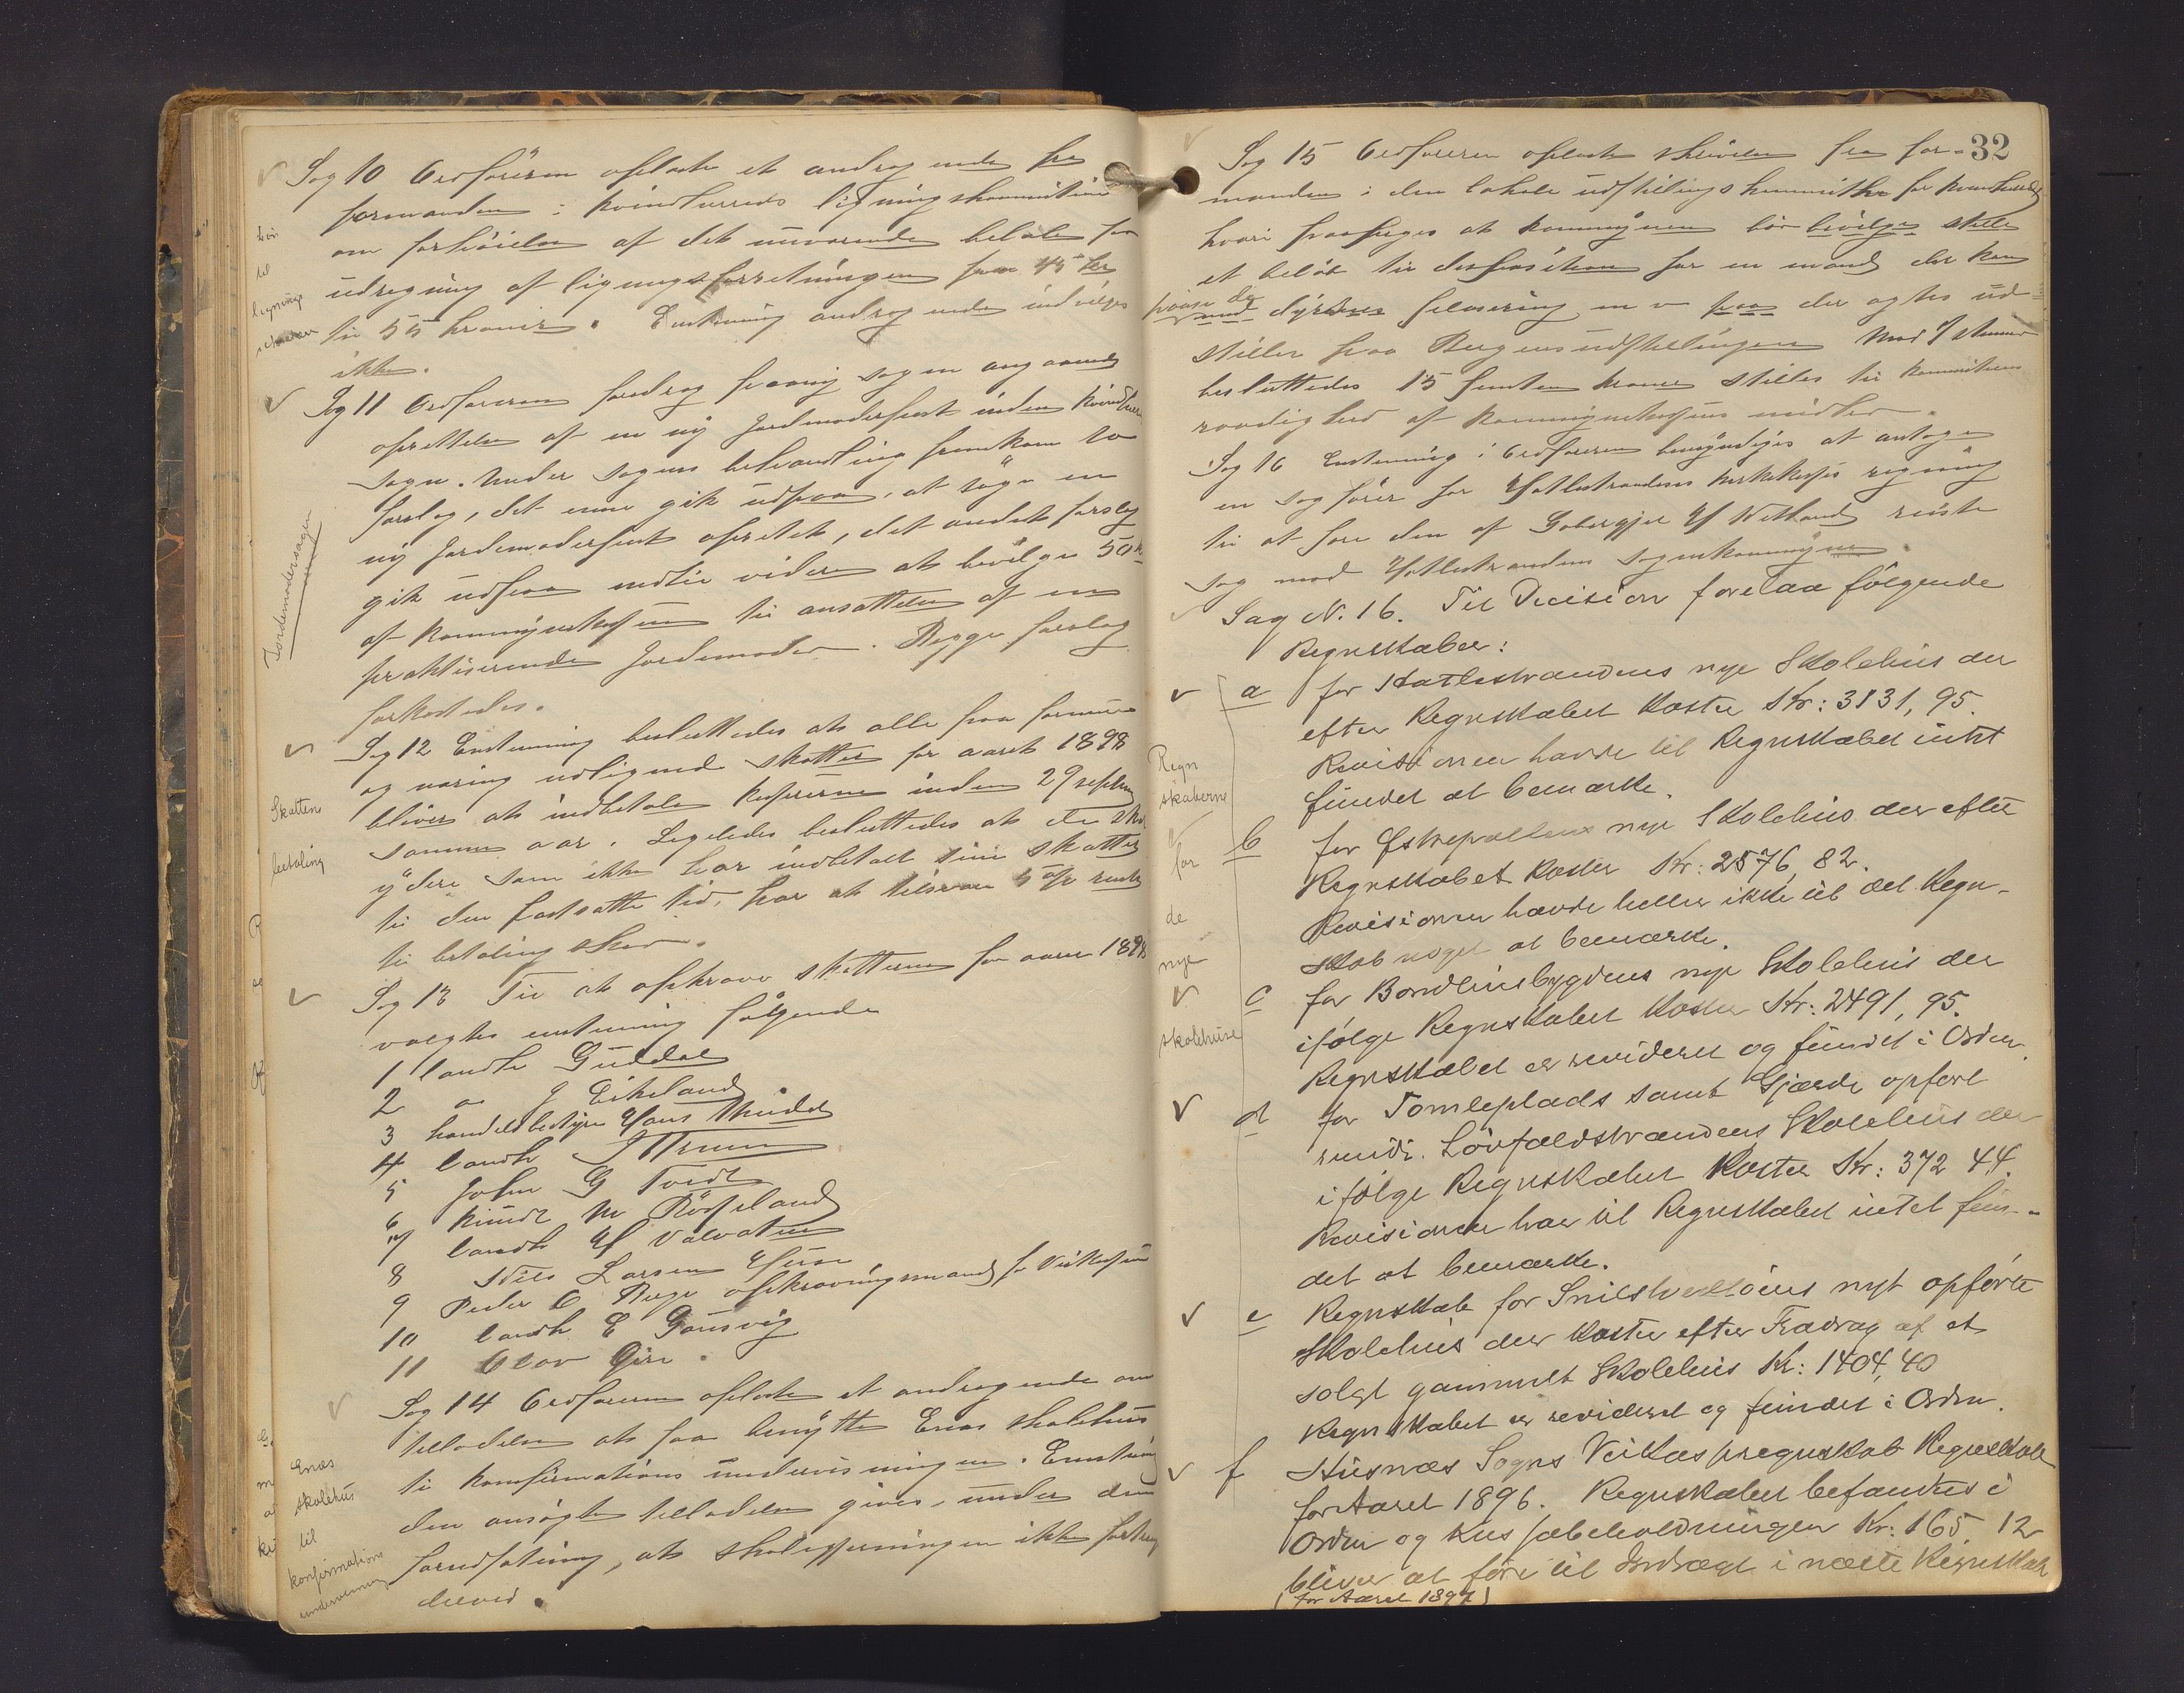 Sag 10 Ordføreren oplæste et andragende fra
formanden i Kvindherreds ligningskommission
om forhöielse af det nuværende beløb for
udregning af ligningsforretningen fra 45 kr
til 55 kroner. Enstemmig andragendet indvilges
ikke.
Sag 11 Ordføreren foredrog paany sagen angaaende
oprettelse af en ny Jordmoderpost inden Kvindherred
sogn. Under sagens behandling fremkom to
forslag, det ene gik udpaa, at søge en
ny Jordemoderpost oprettet, det andet forslag
gik udpaa indtil videre at bevilge 50 kr
af kommunekassen til ansættelse af en
praktiserende Jordemoder. Begge forslag
forkastedes.
Sag 12 Enstemmig besluttedes at alle paa formue
og næring udlignede skatter for aaret 1898
bliver at indbetale kasserene inden 29 septbr
samme aar. Ligeledes besluttedes at de skat
ydere som ikke har indbetalt sine skatter
til den fastsatte tid, har at tilsvare 5 % rente
til betaling sker.
Sag 13 Til at opkræve skatterne for aaret 1898
valgtes enstemmig følgende
1 landh Guddal
2 J Eikeland
3 handelsbestyrer Hans
4 landh
5 John G Tvedt
6 Knudt M Røsseland
7 landh H Valvatne
8 Nils Larsen Huse
9 Peder O Berge opkrævningsmand for Veikassen
10 landh E Gausvig
11 Olav Gjere
Sag 14 Ordføreren oplæste et andragende om
tilladelse at faa benytte Enæs skolehus
til konfirmations undervisningen. Enstemmig
den ansøgte tilladelse gives, under den
forudsætning, at skolegjerningen ikke fortrænges
derved.
Løn
til
lignings
Jordemodersagen
Skattens
betaling
Enæs
skolehus
til
konfirmations
undervisning
32
Sag 15 Ordføreren oplæste skrivelse fra for-
manden i den lokale udstillingskommitee for Kvindherred
hvori forespørges at kommunen bør bevilge stille
et beløb til disposition for en mand der kan
passe de med dyrenes pleie m v paa der agtes ud-
stillet paa Bergensudstillingen. Mod 7 stemmer
besluttedes 15 femten kroner stilles til kommiteens
raadighed af kommunekassens midler.
Sag 16 Enstemmig i Ordføreren bemyndiges at antage
en sagfører for Hatlestrandens kirkekasses regning
til at føre den af Gabergjer H Netland reiste
sag mod Hatlestrandens sognekommune.
Sag N. 16. Til Decision forelaa følgende
Regnskaber:
a for Hatlestrandens nye Skolehus der
efter Regnskabet koster Kr: 3131,95.
Revisionen havde til Regnskabet intet
fundet at bemærke.
b for Eskepollens nye Skolehus der efter
Regnskabet koster Kr: 2576,82.
Revisionen havde heller ikke til det Regn-
skab noget at bemærke.
c for Bondhusbygdens nye Skolehus der
ifølge Regnskabet koster Kr: 2491,95.
Regnskabet er revideret og fundet i Orden.
d for Tomteplads samt Gjærde opført
rundt Løvfaldstrandens Skolehus der
ifølge Regnskabet koster Kr: 372 44.
Revisionen har til Regnskabet intet fun-
det at bemærke.
e Regnskab for Snilstveitøens nyt opførte
Skolehus der koster efter Fradrag af et
solgt gammelt Skolehus Kr: 1404,40
Regnskabet er revideret og fundet i Orden.
f Husnæs Sogns Veikasseregnskab Regnskab
for Aaret 1896. Regnskabet befandtes i
Orden og Kassabeholdningen Kr: 165, 12
bliver at føre til Indtægt i næste Regnskab
(for Aaret 1897)
Regn
skaberne
for
de
nye
skolehuse